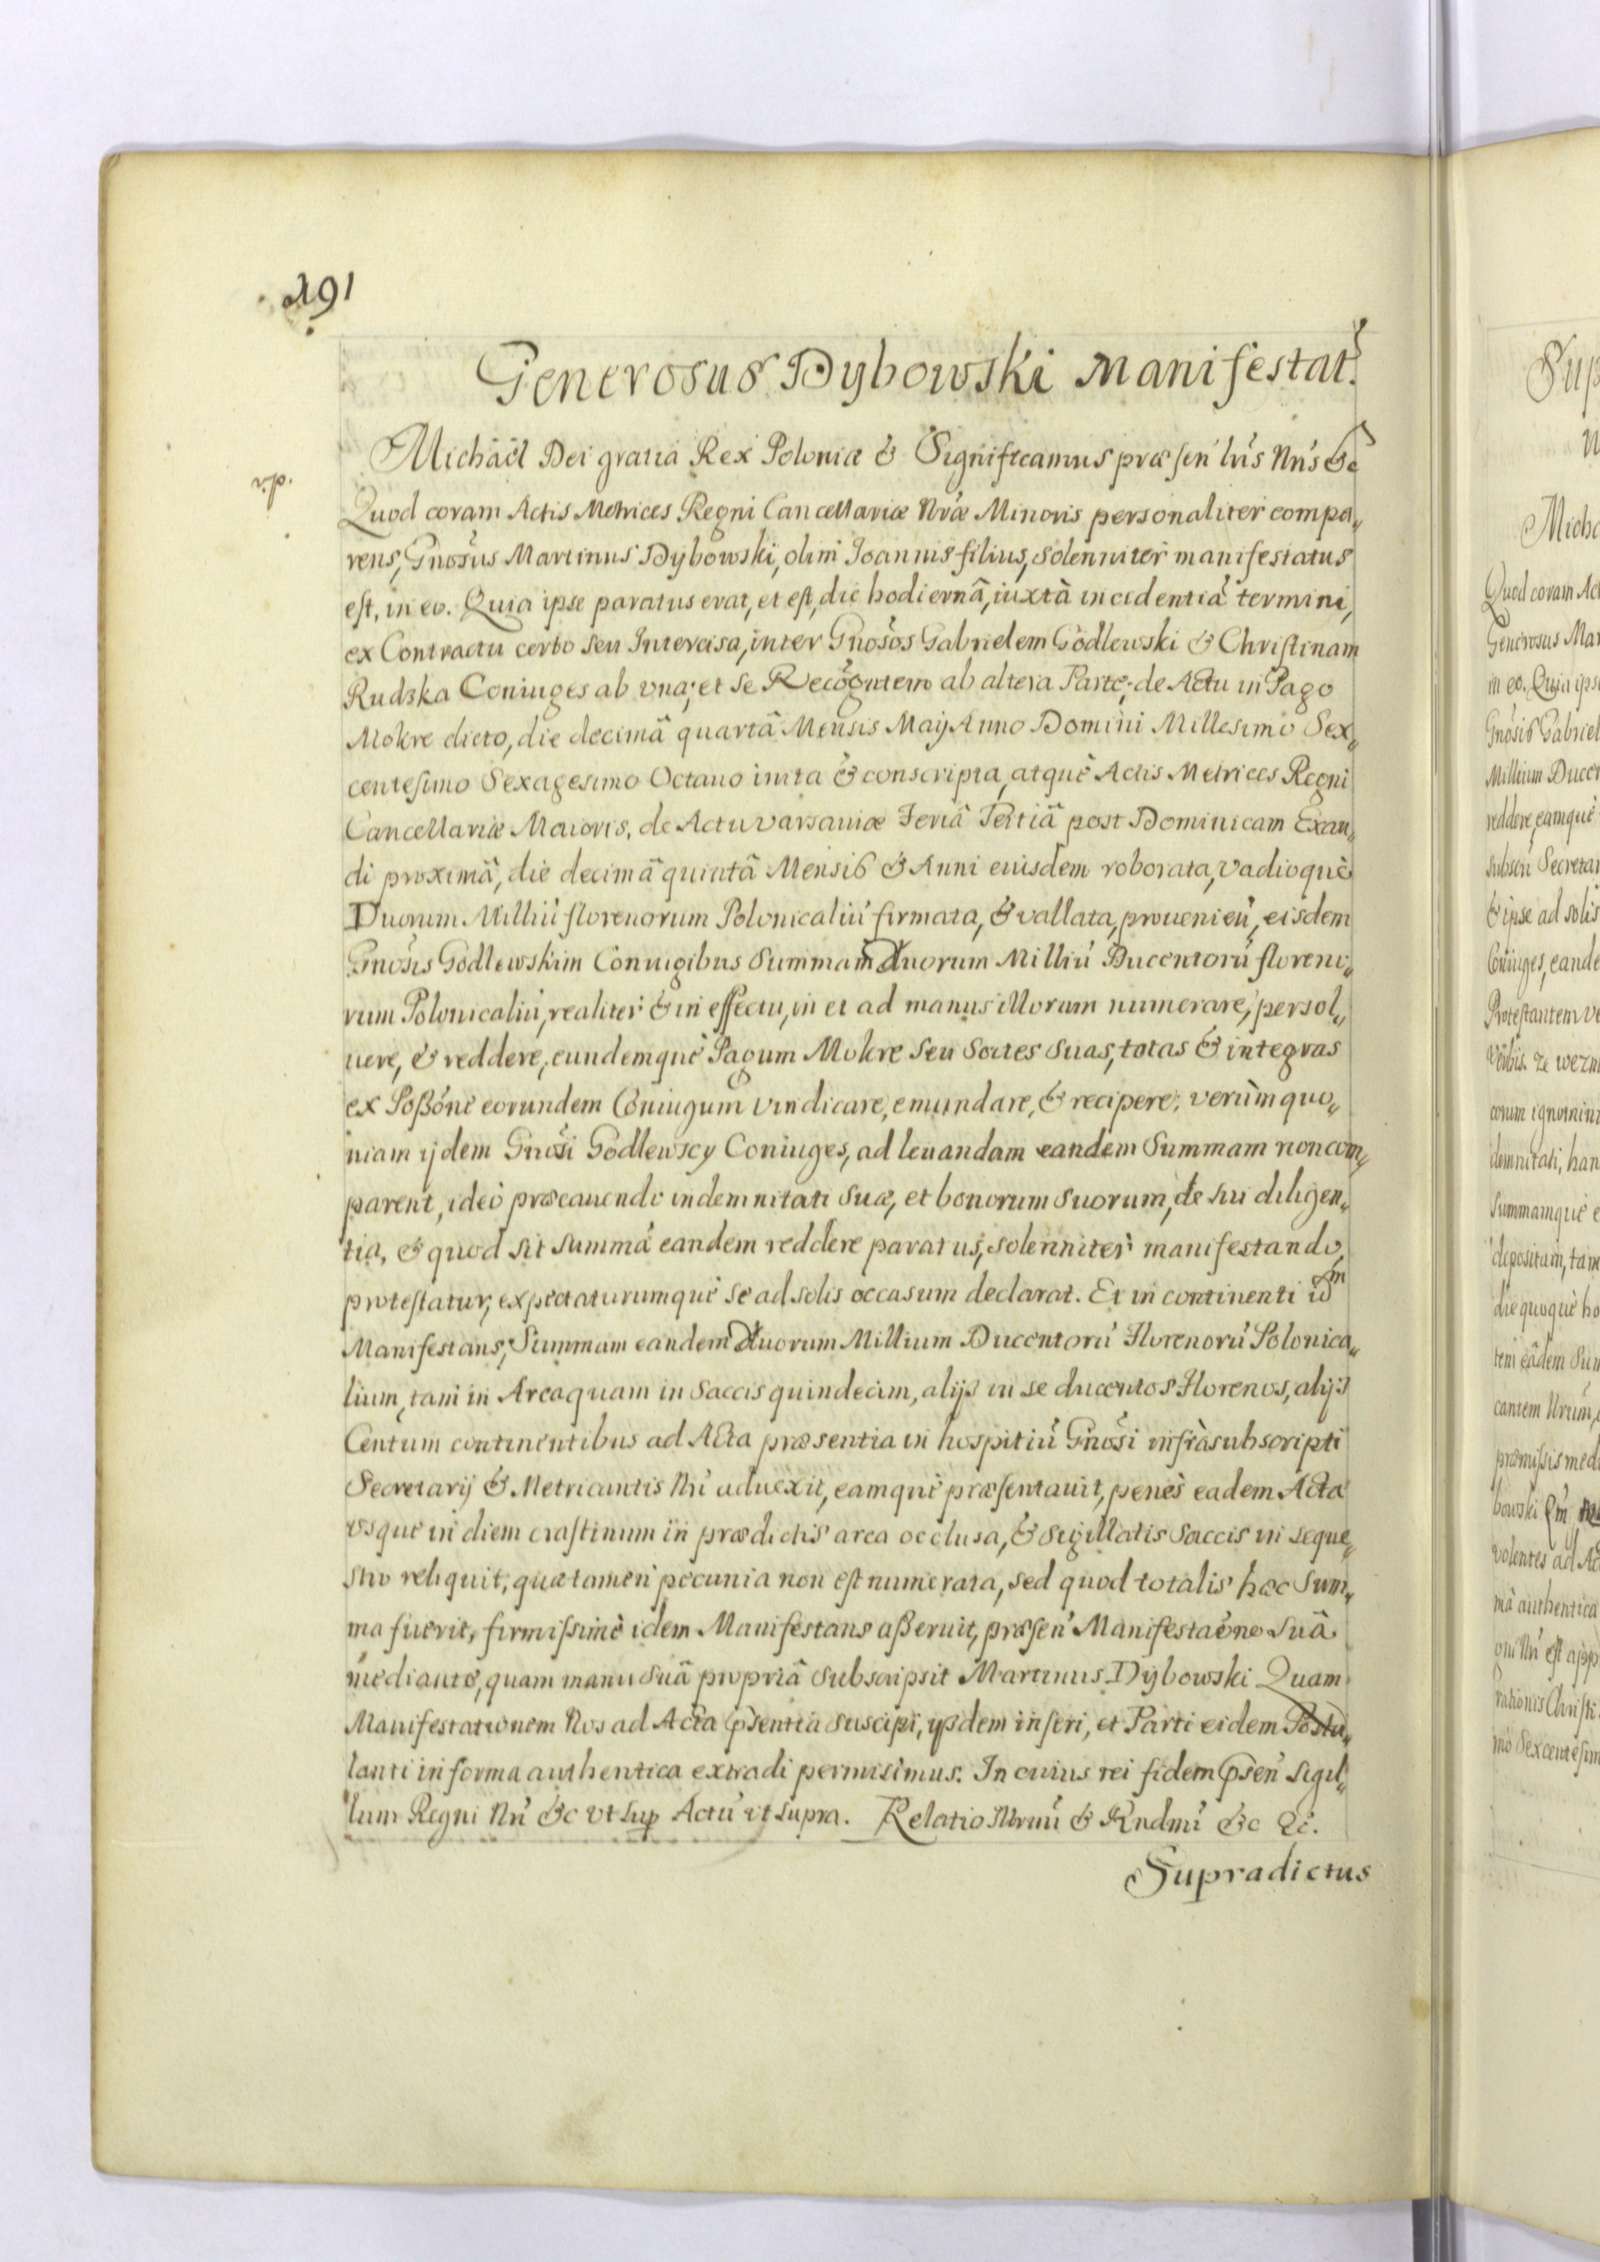 291
Generosus Dybowski Manifestat.
Michäel Dei gratia Rex Poloniæ & Significamus præsen̄ lr̄is Nr̄is &c
r. p.
Quod coram Actis Metrices Regni Cancellariæ Nr̄æ Minoris personaliter compa„
rens, Gnosus Martinus Dybowski, olim Joannis filius, solenniter manifestatus
est, in eo. Quia ipse paratus erat, et est, die hodiernâ, iuxtà incidentiā termini,
ex Contractu certo seu Intercisa, inter Gnosos Gabrielem Godlewski & Christinam
Rudzka Coniuges ab vna; et se Recōgntem ab altera Parte; de Actu in Pago
Mokre dicto, die decimâ quartâ Mensis Maij Anno Domini Millesimo Sex„
centesimo Sexagesimo Octauo inita & conscripta, atquè Actis Metrices Regni
Cancellariæ Maioris, de Actu Varsauiæ Feriâ Tertiâ post Dominicam Exau„
di proximâ, die decimâ quintâ Mensis & Anni eiusdem roborata, Vadioquè
Duorum Milliū florenorum Polonicaliū firmata, & vallata, prouenien̄, eisdem
Gnosis Godlewskim Coniugibus Summam Duorum Milliū Ducentorū floreno„
rum Polonicaliū, realiter & in effectu, in et ad manus illorum numerare, persol„
uere, & reddere, eundemquè Pagum Mokre seu Sortes suas, totas & integras
ex Poßōne eorundem Coniugum vindicare, emundare, & recipere; verùm quo„
niam ijdem Gnosi Godlewscy Coniuges, ad leuandam eandem Summam non com„
parent, ideò præcauendo indemnitati suæ, et bonorum suorum, de sui diligen„
tia, & quod sit summā eandem reddere paratus, solenniter manifestando,
protestatur, expectaturumquè se ad solis occasum declarat. Et in continenti idm
Manifestans, Summam eandem Duorum Millium Ducentorū Florenorū Polonica„
lium, tam in Arca quam in Saccis quindecim, alijs in se ducentos Florenos, alijs
Centum continentibus ad Acta præsentia in hospitiū Gnosi infràsubscripti
Secretarij & Metricantis Nr̄i aduexit, eamquè præsentauit, penès eadem Acta
vsquè in diem crastinum in prædictis arca occlusa, & sigillatis saccis in seque„
stro reliquit, quæ tamen pecunia non est numerata, sed quod totalis hæc Sum„
ma fuerit, firmissimè idem Manifestans aßeruit, præsen̄ Manifestaōne suâ
mediante, quam manu suâ propriâ subscripsit Martinus Dybowski Quam
Manifestationem Nos ad Acta pñsentia suscipi, ijsdem inseri, et Parti eidem Postu„
lanti in forma authentica extradi permisimus. In cuius rei fidem pñsen̄ Sigil„
lum Regni Nr̄i &c vt sup Actū vt supra. Relatio Illrmi & Rndmi &c &c.
Supradictus